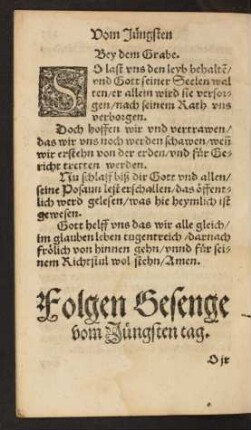 Vom Jüngsten
Bey dem Grabe.
SO last vns den leyb behaltē/
vnd Gott seiner Seelen wal
ten/er allein wird sie versor-
gen/nach seinem Rath vns
verborgen.
Doch hoffen wir vnd vertrawen/
das wir vns noch werden schawen/weñ
wir erstehn von der erden/vnd für Ge-
richt tretten werden.
Nu schlaff biß dir Gott vnd allen/
seine Posaun lest erschallen/das öffent-
lich werd gelesen/was hie heymlich ist
gewesen.
Gott helff vns das wir alle gleich/
im glauben leben tugentreich/darnach
frölich von hinnen gehn/vnnd für sei-
nem Richtstul wol stehn/Amen.
Folgen Gesenge
vom Jüngsten tag.